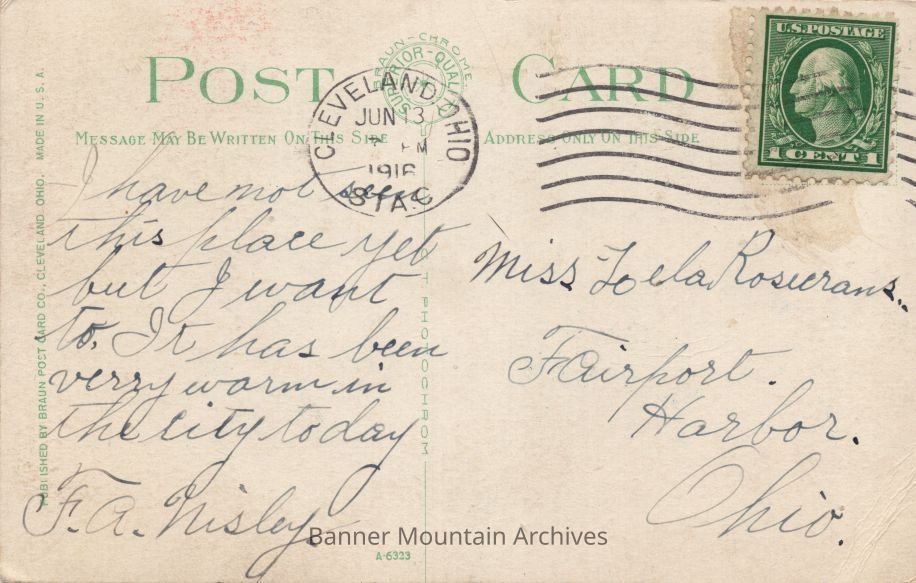 POST CARD
BRAUN-CHROME
SUPERIOR-QUALITY
MESSAGE MAY BE WRITTEN ON THIS SIDE
ADDRESS ONLY ON THIS SIDE
CLEVELAND, OHIO
JUN 13
PM
1916
STA.C
U.S. POSTAGE
1 CENT 1
I have not seen
this place yet
but I want
to. It has been
verry warm in
the city today
F. A. Nisley.
Miss Lela Rosecrans.
Fairport.
Harbor.
Ohio.
PUBLISHED BY BRAUN POST CARD CO., CLEVELAND, OHIO. MADE IN U.S.A.
CT PHOTOCHROM
A-6323
Banner Mountain Archives